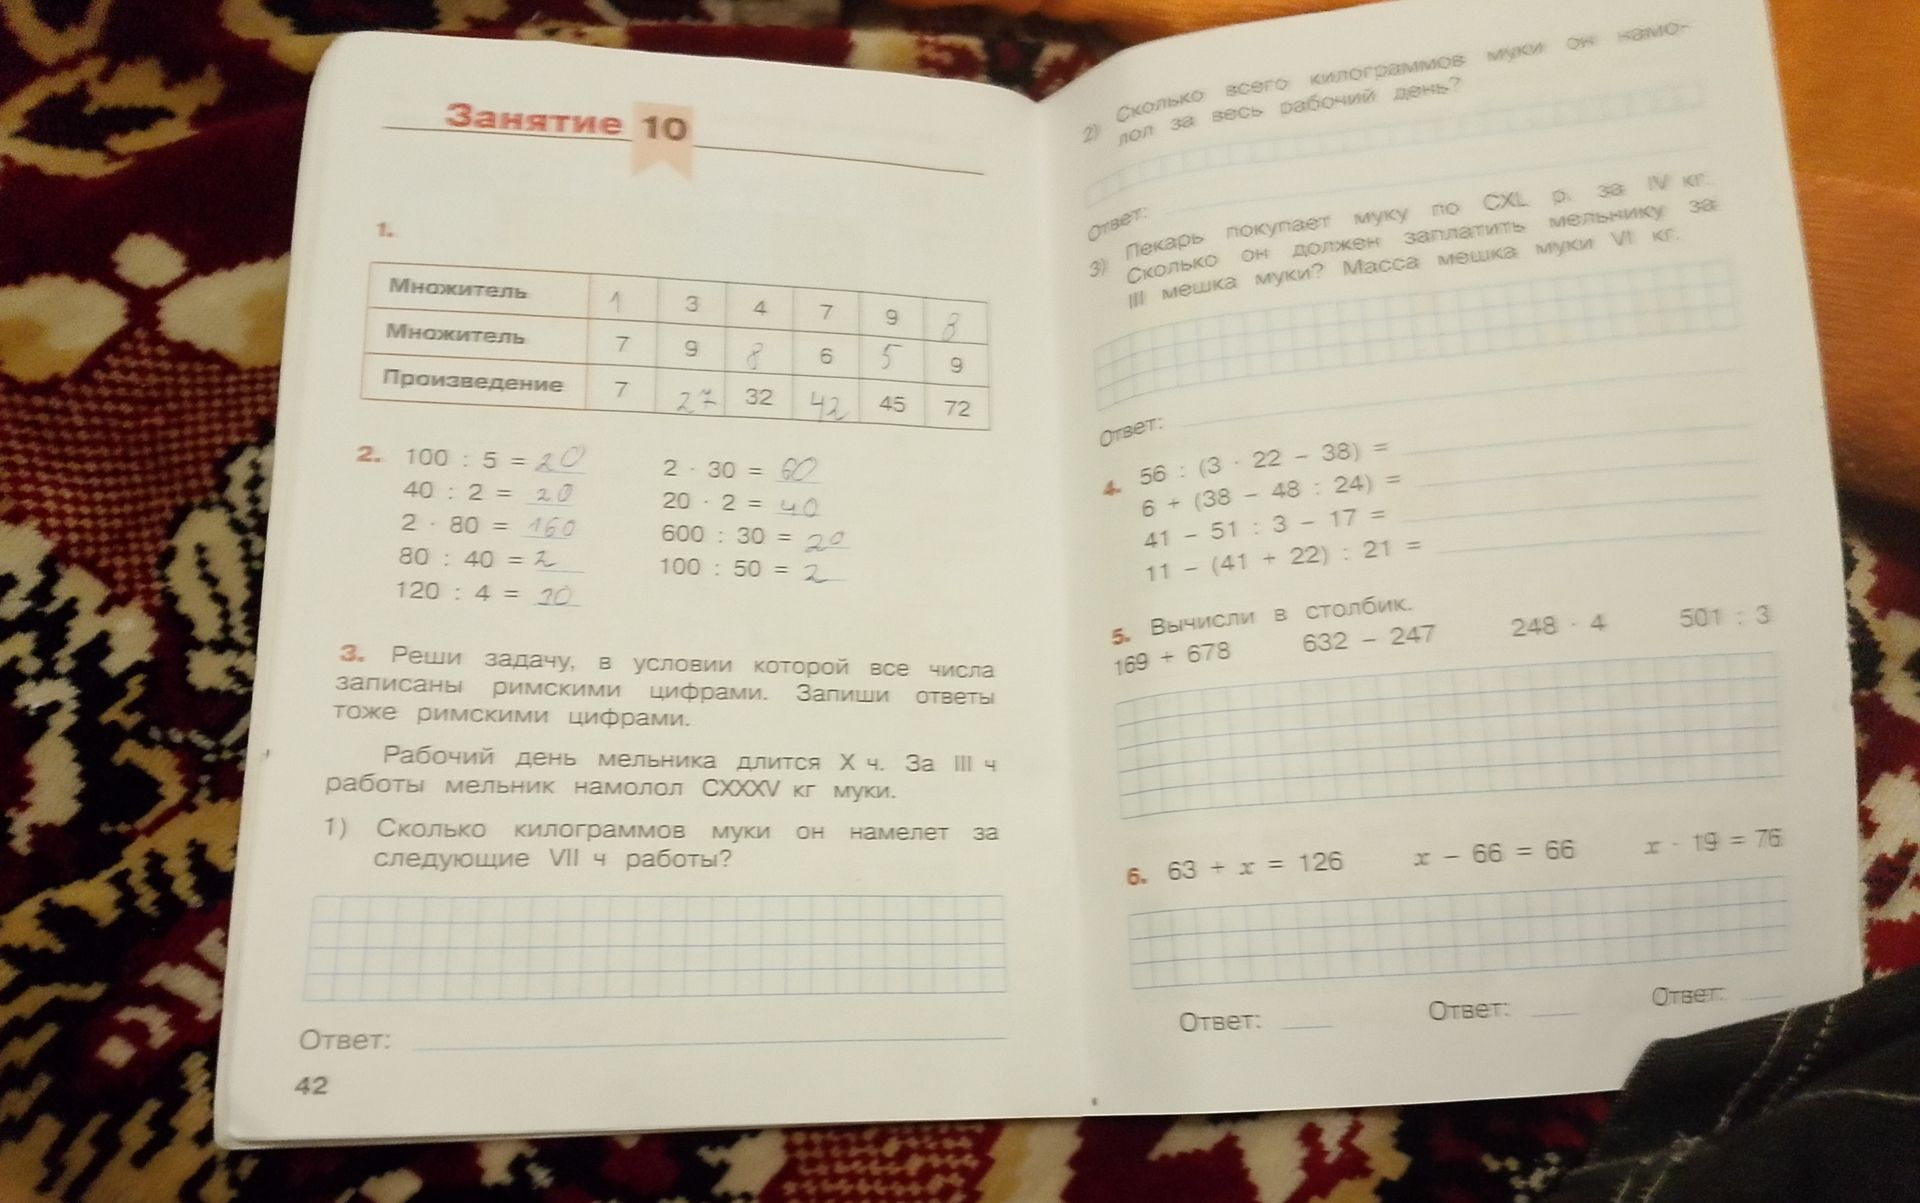 Занятие 10
1.
Множитель 1 3 4 7 9 8
Множитель 7 9 8 6 5 9
Произведение 7 27 32 42 45 72
2. 100 : 5 = 20 2 · 30 = 60
40 : 2 = 20 20 · 2 = 40
2 · 80 = 160 600 : 30 = 20
80 : 40 = 2 100 : 50 = 2
120 : 4 = 30
3. Реши задачу, в условии которой все числа
записаны римскими цифрами. Запиши ответы
тоже римскими цифрами.
Рабочий день мельника длится X ч. За III ч
работы мельник намолол CXXXV кг муки.
1) Сколько килограммов муки он намелет за
следующие VII ч работы?
Ответ:
42
2) Сколько всего килограммов муки он намо-
лол за весь рабочий день?
Ответ:
3) Пекарь покупает муку по CXL р. за IV кг.
Сколько он должен заплатить мельнику за
III мешка муки? Масса мешка муки VI кг.
Ответ:
4. 56 : (3 · 22 – 38) =
6 + (38 – 48 : 24) =
41 – 51 : 3 – 17 =
11 – (41 + 22) : 21 =
5. Вычисли в столбик.
169 + 678 632 – 247 248 · 4 501 : 3
6. 63 + x = 126 x – 66 = 66 x · 19 = 76
Ответ: Ответ: Ответ: